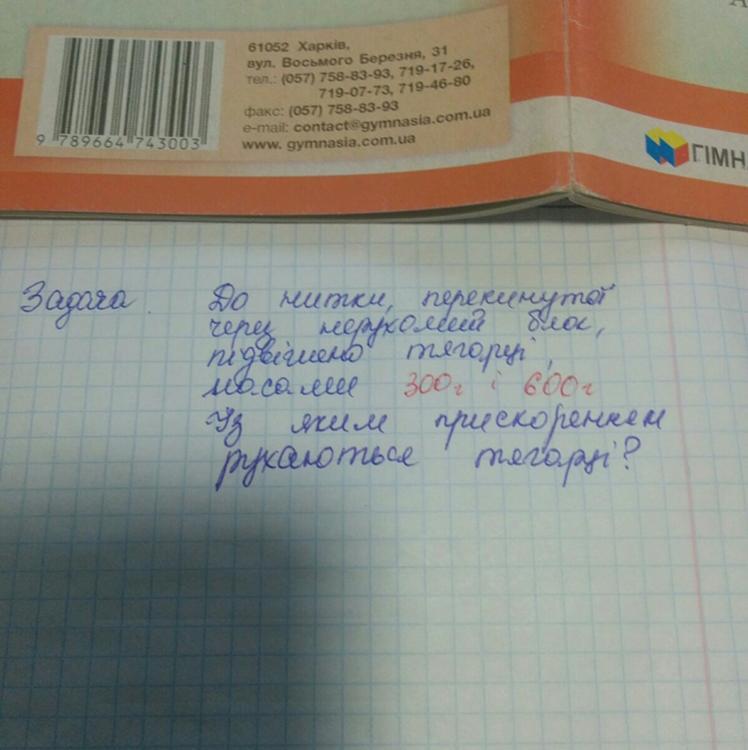 61052 Харків,
вул. Восьмого Березня, 31
тел.: (057) 758-83-93, 719-17-26,
719-07-73, 719-46-80
факс: (057) 758-83-93
e-mail: contact@gymnasia.com.ua
www. gymnasia.com.ua
9 789664 743003
ГІМН
Задача. До нитки, перекинутої
через нерухомий блок,
підвішено тягарці,
масами 300г і 600г
Из яким прискоренням
рухаються тягарці?